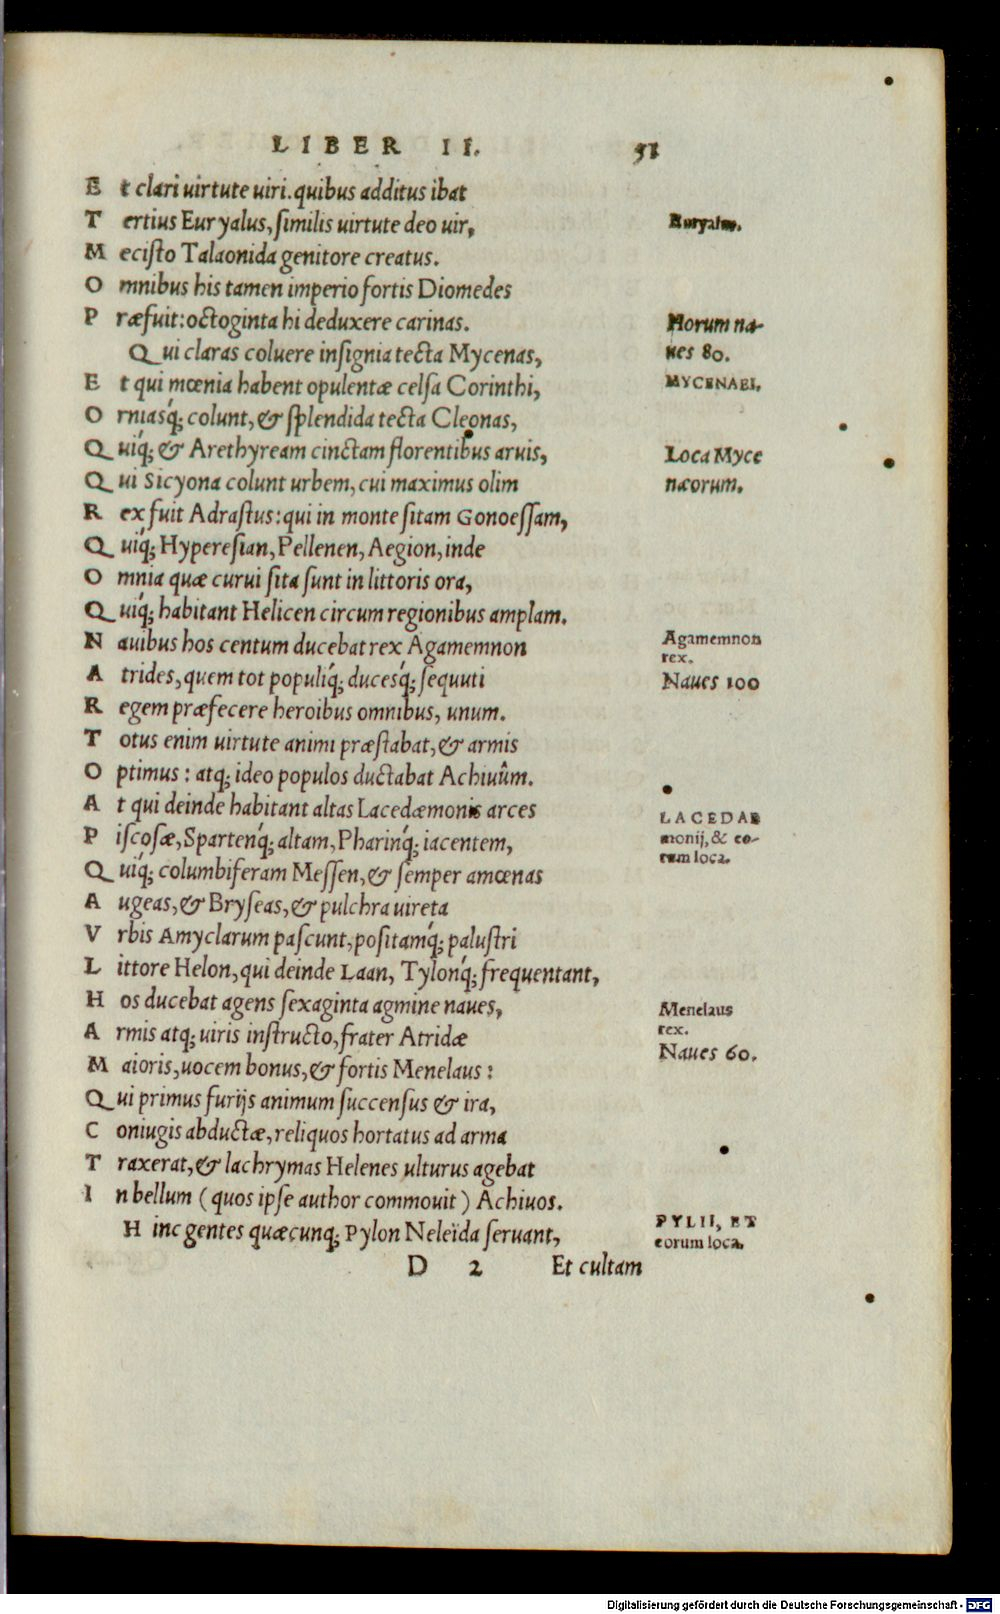 LIBER II. 51
Et clari uirtute uiri. quibus additus ibat
Tertius Euryalus, similis uirtute deo uir,
Euryalus.
Mecisto Talaonida genitore creatus.
Omnibus his tamen imperio fortis Diomedes
Præfuit: octoginta hi deduxere carinas.
Horum na-
Qui claras coluere insignia tecta Mycenas,
ues 80.
Et qui mœnia habent opulentæ celsa Corinthi,
MYCENAEI.
Orniasq́; colunt, & splendida tecta Cleonas,
Quiq́; & Arethyream cinctam florentibus aruis,
Loca Myce
Qui Sicyona colunt urbem, cui maximus olim
næorum.
Rex fuit Adrastus: qui in monte sitam Gonoessam,
Quiq́; Hyperesian, Pellenen, Aegion, inde
Omnia quæ curui sita sunt in littoris ora,
Quiq́; habitant Helicen circum regionibus amplam.
Nauibus hos centum ducebat rex Agamemnon
Agamemnon
rex.
Atrides, quem tot populiq́; ducesq́; sequuti
Naues 100
Regem præfecere heroibus omnibus, unum.
Totus enim uirtute animi præstabat, & armis
Optimus: atq; ideo populos ductabat Achiuûm.
At qui deinde habitant altas Lacedæmonis arces
LACEDAE
Piscosæ, Spartenq́; altam, Pharinq́; iacentem,
monij, & eo-
rum loca.
Quiq́; columbiferam Messen, & semper amœnas
Augeas, & Bryseas, & pulchra uireta
Vrbis Amyclarum pascunt, positamq́; palustri
Littore Helon, qui deinde Laan, Tylonq́; frequentant,
Hos ducebat agens sexaginta agmine naues,
Menelaus
rex.
Armis atq; uiris instructo, frater Atridæ
Naues 60.
Maioris, uocem bonus, & fortis Menelaus:
Qui primus furijs animum succensus & ira,
Coniugis abductæ, reliquos hortatus ad arma
Traxerat, & lachrymas Helenes ulturus agebat
In bellum (quos ipse author commouit) Achiuos.
PYLII, ET
Hinc gentes quæcunq; Pylon Neleïda seruant,
eorum loca.
D 2 Et cultam
Digitalisierung gefördert durch die Deutsche Forschungsgemeinschaft - DFG